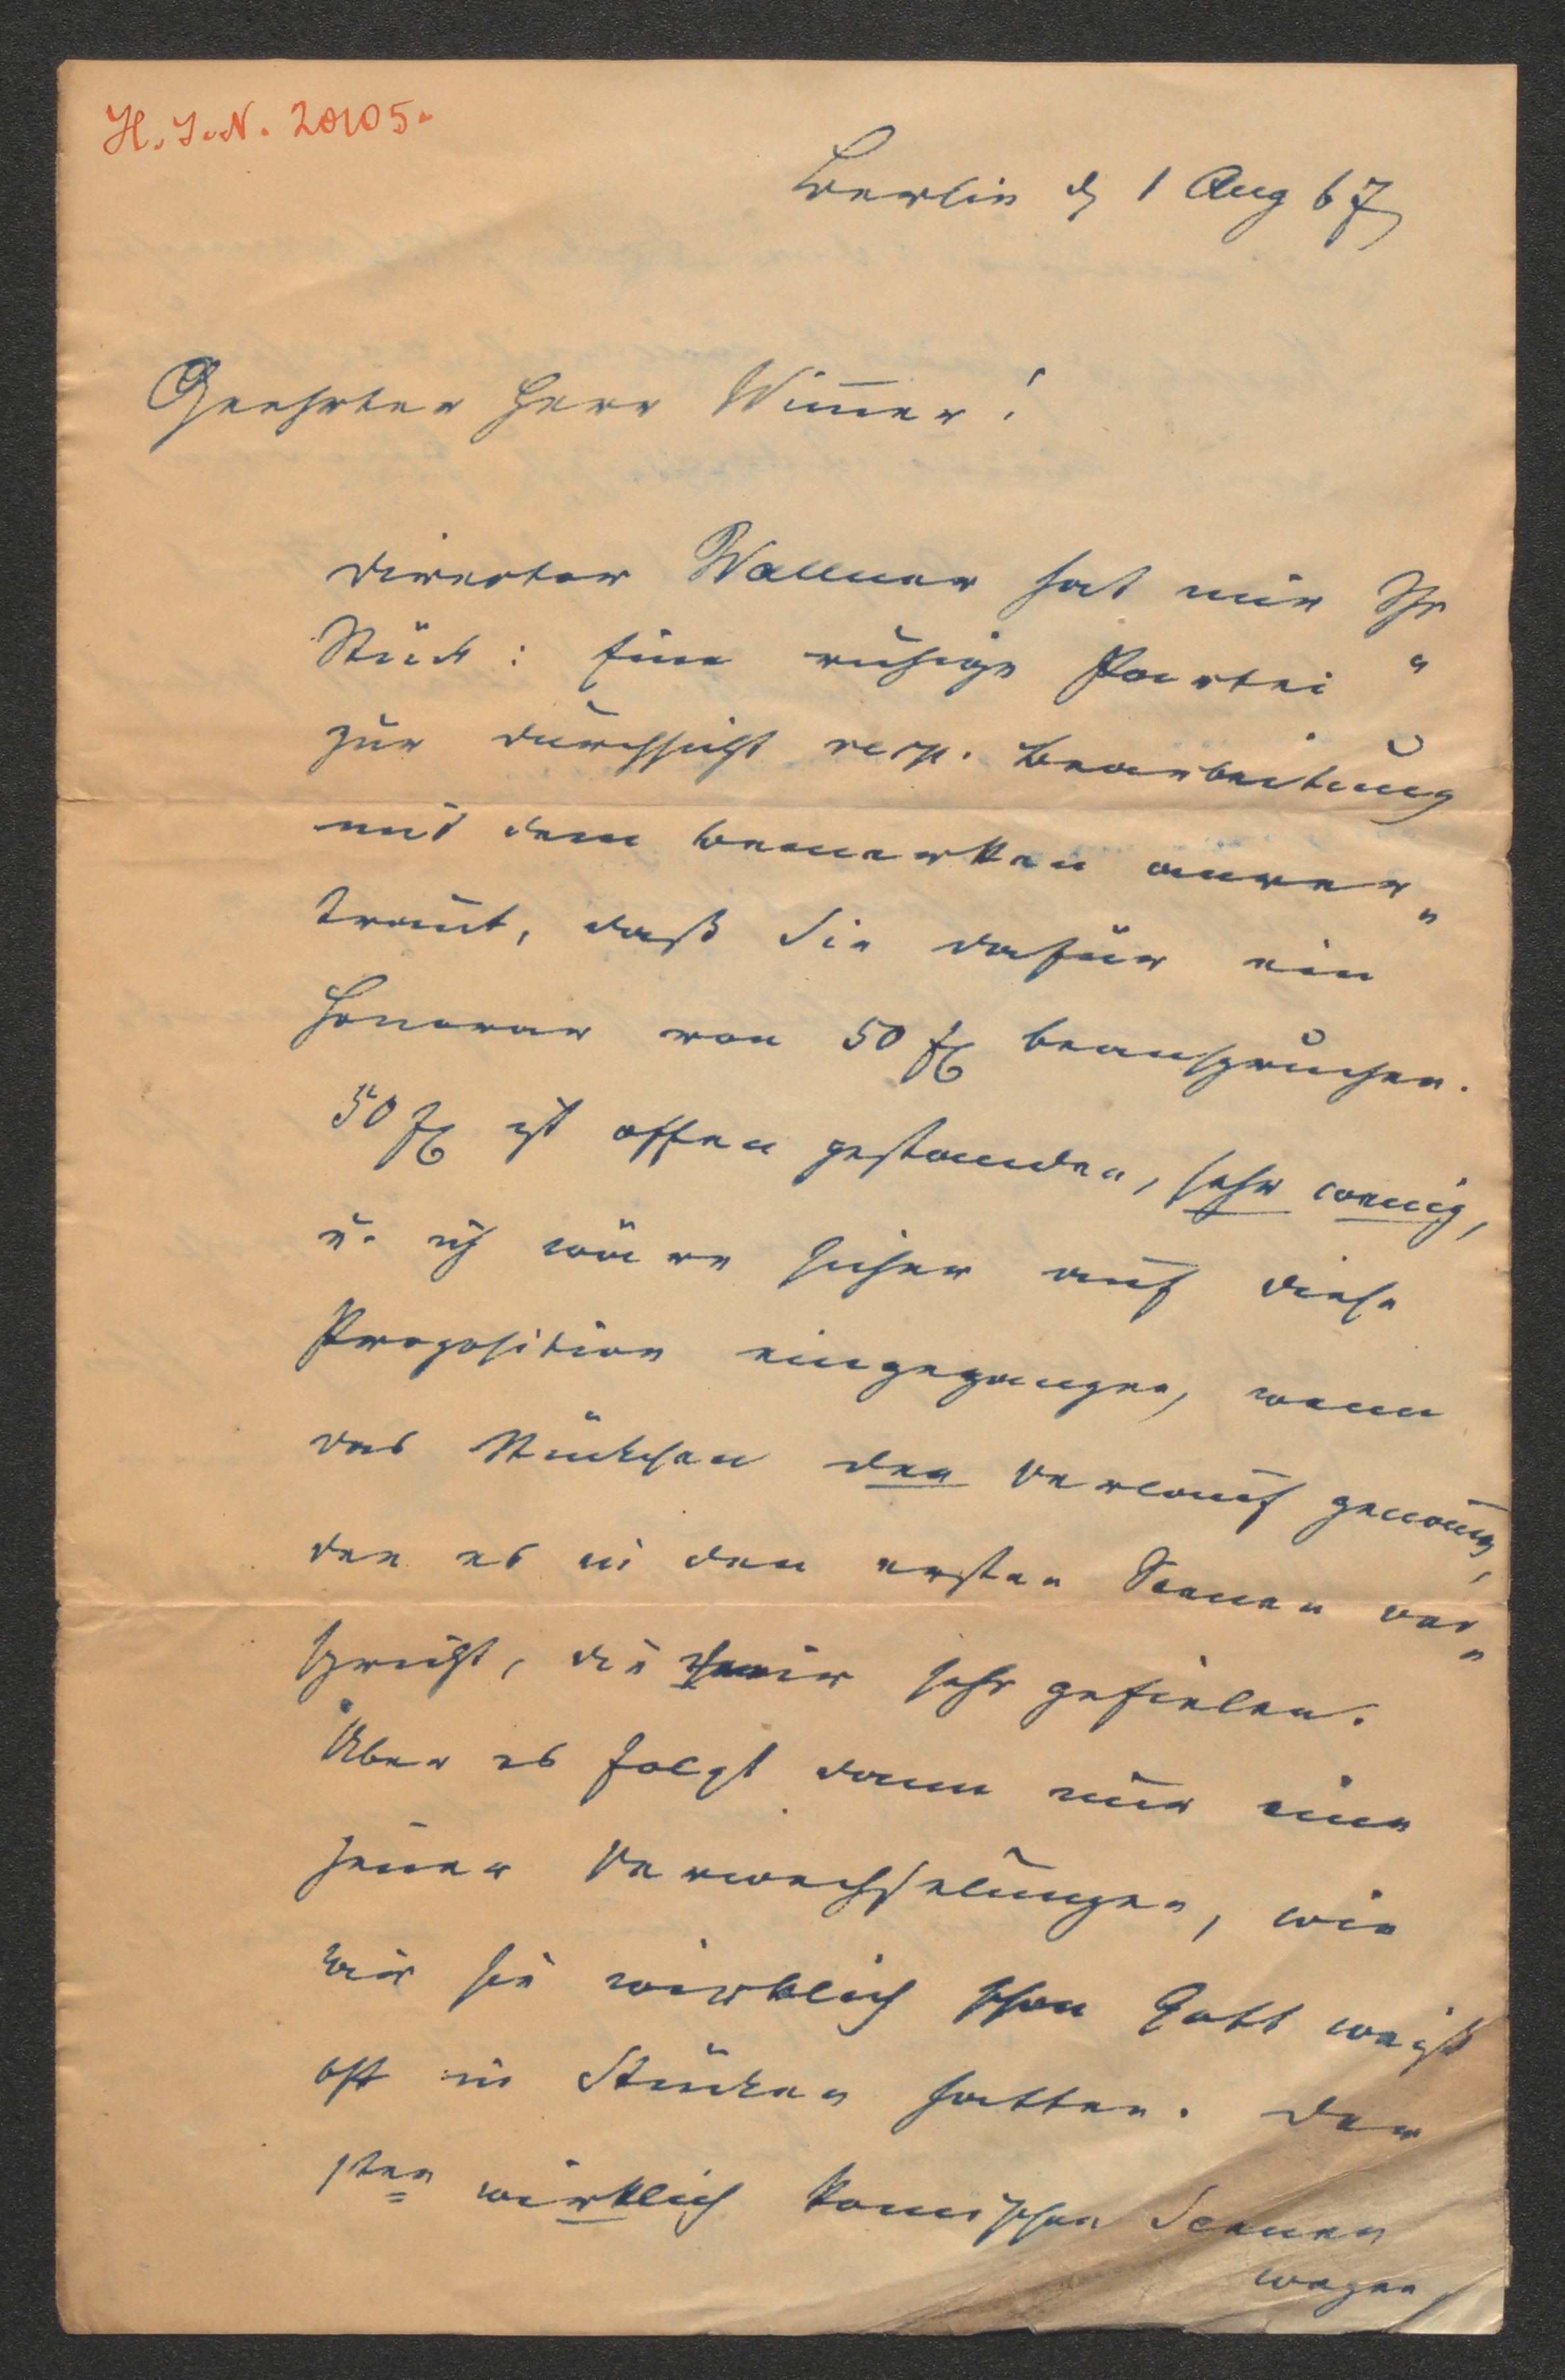 H. I. N. 20105.
Berlin d 1 Aug 67
Geehrter Herr Wim̅er!
Director Wallner hat mir Ihr
Stück: Eine ruhige Partei "
zur Durchsicht resp. Bearbeitung
mit dem Bemerken anver„
traut, daß Sie dafür ein
Honorar von 50 fl beanspruchen.
50 fl ist offen gestanden, sehr wenig,
u. ich wäre sicher auf diese
Proposition eingegangen, wenn
das Stückchen den Verlauf genom̅en,
den es in den ersten Scenen ver„
spricht, die mir sehr gefielen.
Aber es folgt dann nur eine
jener Verwechselungen, wie
wir sie wirklich schon Gott weiß
oft in Stücken hatten. Der
1sten wirklich komischen Scenen
wegen